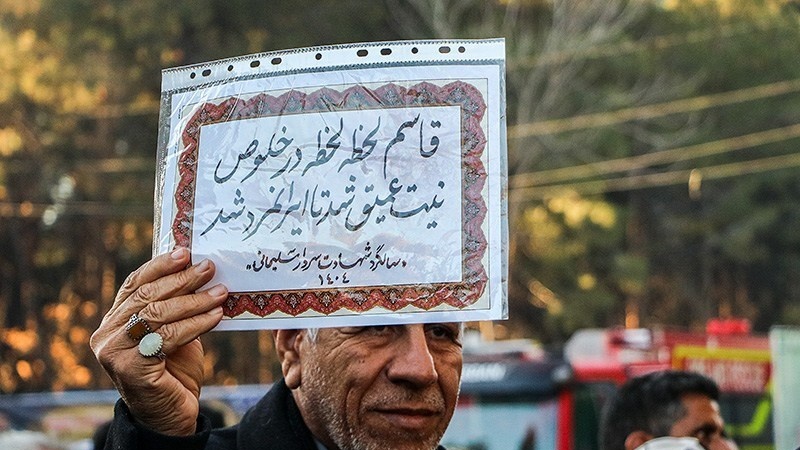 قاسم لحظه لحظه در خلوص
نیت عمیق شد تا ابرالمرد شد
«سالگرد شهادت سردار سلیمانی»
۱۴۰۴